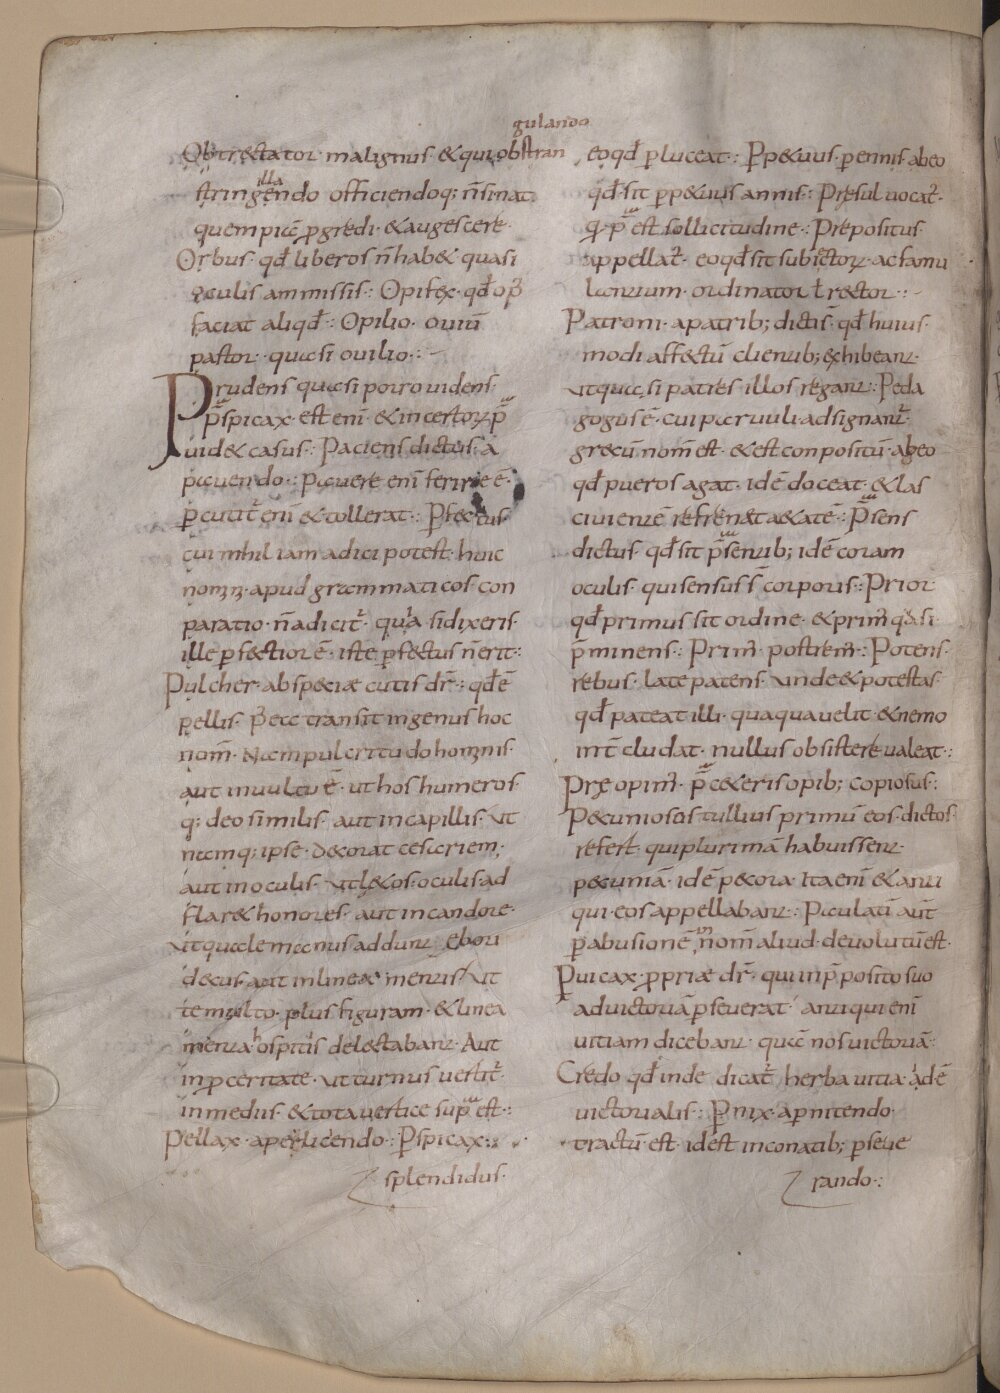 gulando
Obtrectator malignus · & qui obstran
illa
stringendo officiendoq; n̄ sinat
quempiā ꝓgredi · & augescere ·
Orbus · qđ liberos n̄ hab& quasi
oculis ammissis :· Opifex · qđ op̄
faciat aliqđ :· Opilio · ouiū
pastor · quasi ouilio :·
Prudens quasi porro uidens ·
p̄spicax · est eni̅ · & incertoꝝ p̄
uid& casus :· Paciens dictus a
pauendo :· Pauere eni̅ ferire ē ·
ꝑcutit̄ eni̅ & tollerat :· Pfectus
cui nihil iam adici potest · huic
nomini · apud grammaticos con
paratio · n̄ adicit̄ · quia si dixeris
ille ꝑfectior ē · iste ꝑfectus n̄ erit :·
Pulcher · ab speciæ cutis dr̄ :· qđ ē
pellis · P̄ea transit in genus hoc
nom̄ · Nam pulcritudo hominis ·
aut in uultu ē · ut hos humeros
q; deo similis · aut in capillis · ut
namq; ipse · decorat cesariem ;
aut in oculis · ut l&os · oculis ad
flar& honores · aut in candore ·
ut quale manus addunt · ebori
decus · aut in lineamentis · ut
te multo · plus figuram · & linea
menta hospitis delectabant · Aut
in ꝓceritate · ut turnus uertit̄ ·
in medius · & tota uertice supra est :·
Pellax · a perlicendo :· Pspicax :·
splendidus ·
eo qđ ꝑluceat :· Pp&uus · ꝑennis ab eo
qđ sit ꝑp&uus annis :· Pręsul uocat̄ ·
q · p̄ est sollicitudine :· Prepositus
appellat̄ · eo qđ sit subiectoꝝ · ac famu
lantium · ordinator ł rector :·
Patroni · a patrib; dictis · qđ huius ·
modi affectū clientib; exhibeant ·
ut quasi patres illos regant :· Peda
gogus ē · cui paruuli · adsignant̄ ·
grecū nom̄ est · & est conpositū · ab eo
qđ pueros agat · idē doceat · & las
ciuientē refren& ætatē :· P̄sens
dictus · qđ sit p̄sentib; idē coram
oculis · qui sensus s̄ corporis :· Prior
qđ primus sit ordine · & prim̄ quasi
p̄minens :· Prim̄ · postrem̄ :· Potens ·
rebus · late patens · unde & potestas ·
qđ pateat illi · quaqua uelit · & nemo
int̄cludat · nullus obsistere ualeat :·
Pre opim̄ · p̄ c&eris opib; copiosus :·
Pecuniosus tullius primū eos · dictos ·
refert · qui plurimā habuissent ·
pecuniā · idē pecora · Ita eni̅ & anti
qui · eos appellabant :· Paulatī aūt
ꝑ abusionē nom̄ aliud · deuolutū est ·
Puicax · ꝓpriæ dr̄ · qui in p̄posito suo
ad uictoriā ꝑseuerat · antiqui eni̅
uitiam dicebant · quā nos uictoriā :·
Credo qđ inde dicat̄ herba uitia · idē
uictorialis :· Pnix · a pnitendo ·
tractū est · id est in conatib; ꝑseue
rando :·